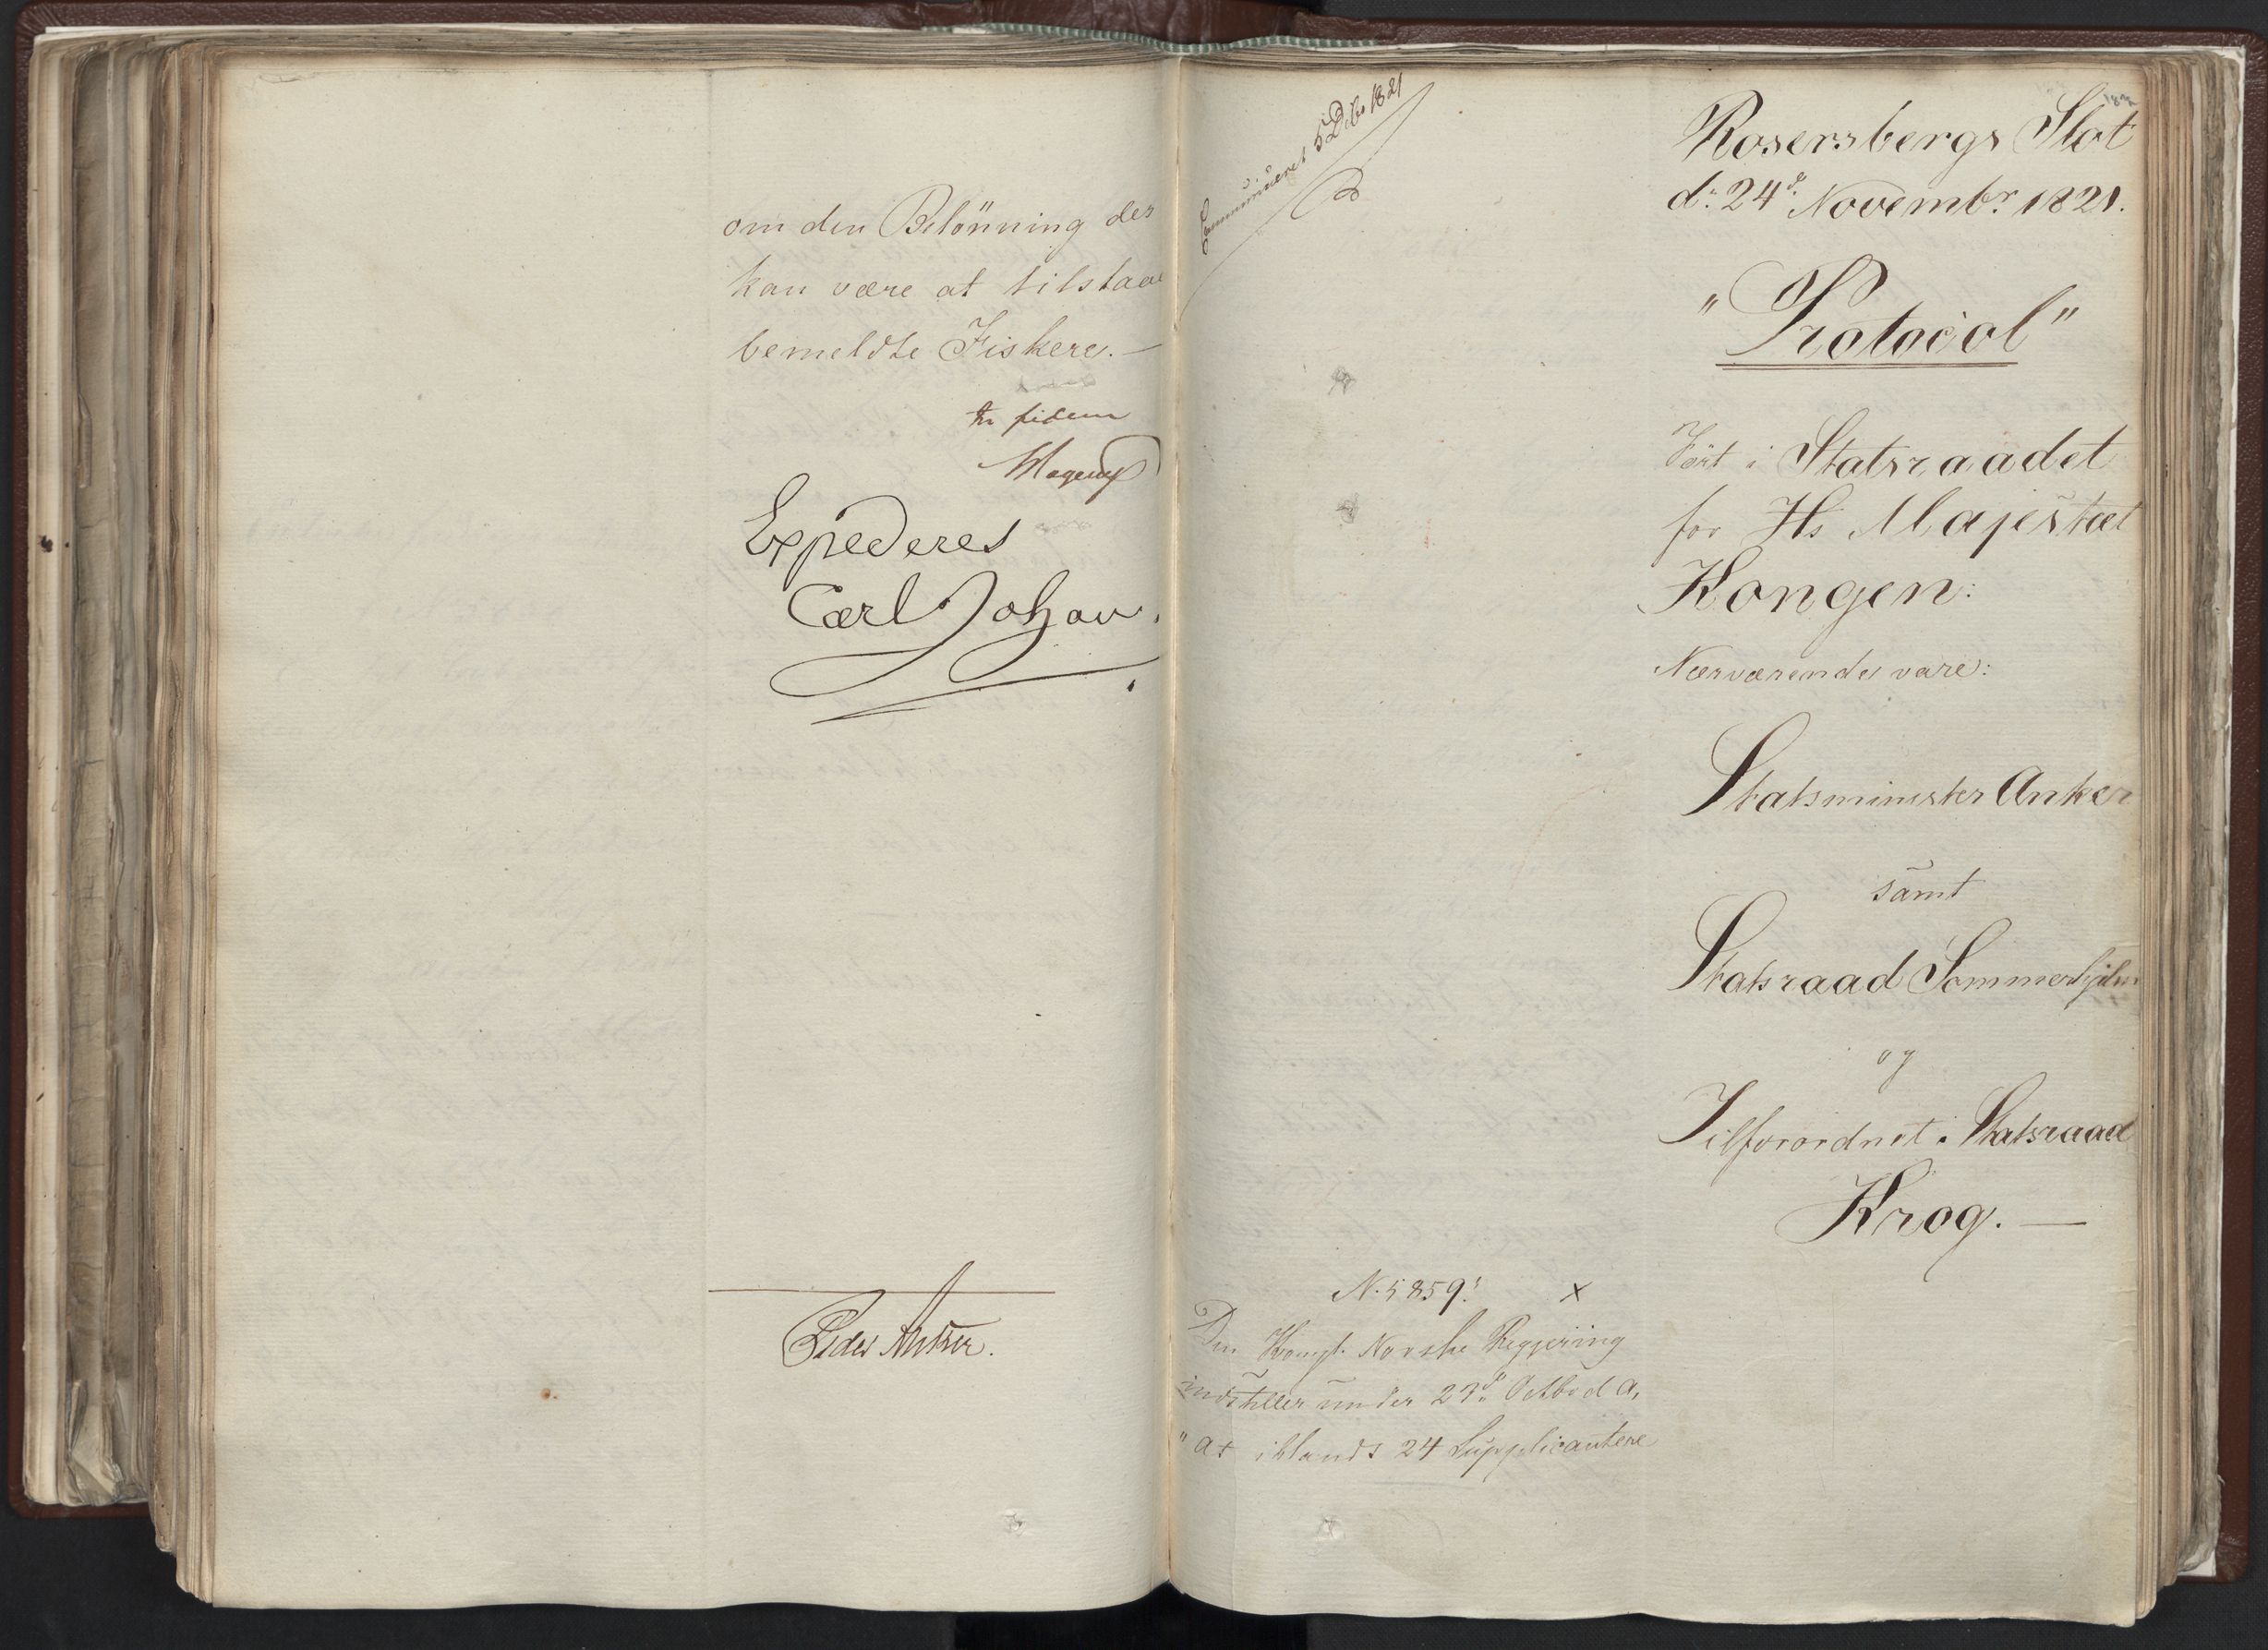 om den Belönning der
kan være at tilstaae
bemeldte Fiskere.—
In fidem
Expederes
Carl Johan.
Peder Anker.
Communiceret 5 Dcbr 1821
Rosersbergs Slot
d: 24de Novembr 1821.
"Protocol"
Fört i Statsraadet
for Hs Majestæt
Kongen:
Nærværende vare:
Statsminister Anker
samt
Statsraad Sommerhjelm
og
Tilforordnet Statsraad
Krog.—
N. 5859. x
Den Kongl. Norske Regjering
indstiller under Octbr d. A,
"at iblandt 24 Supplicantere